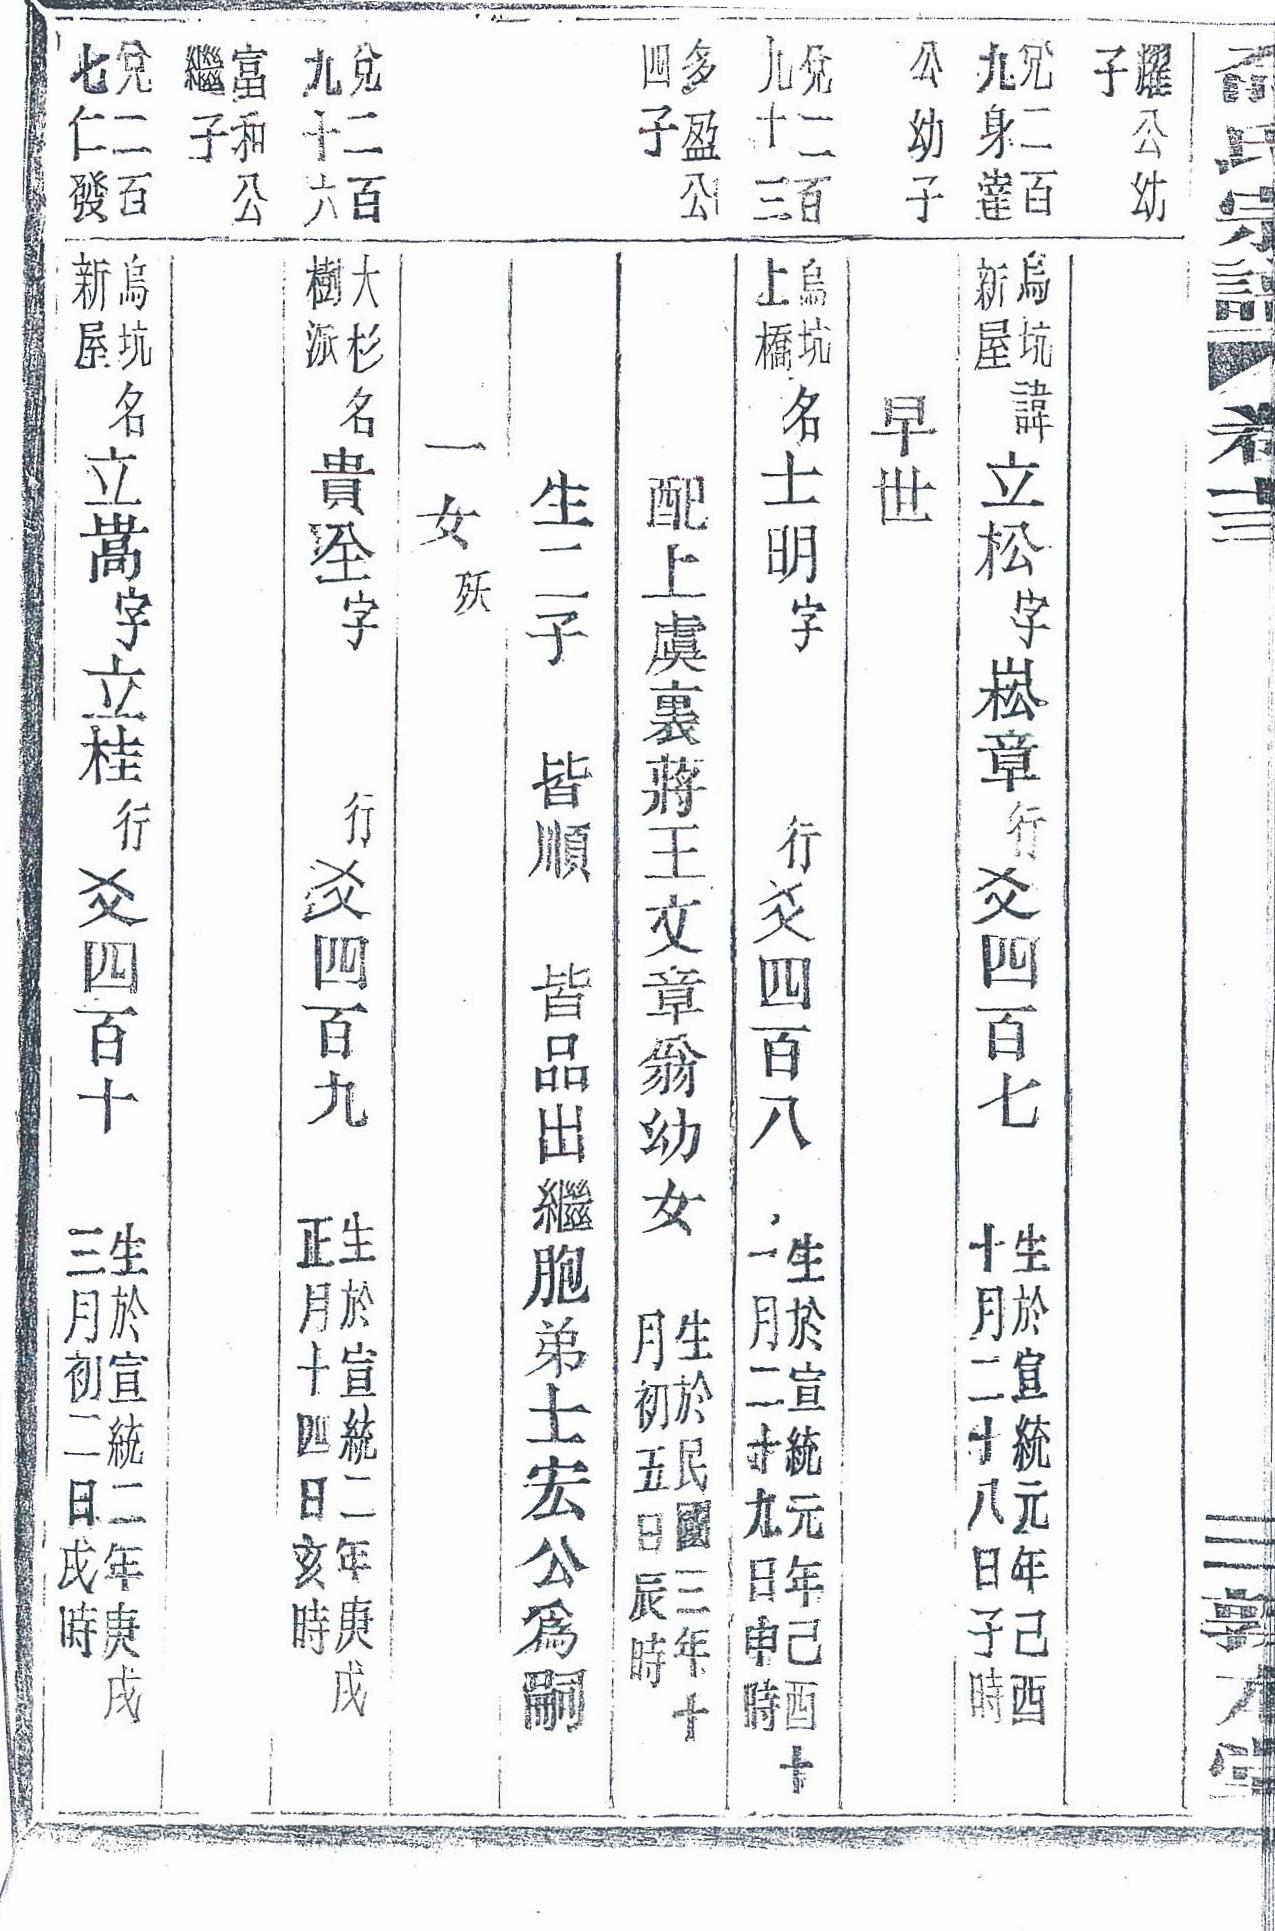 氏宗譜 卷十三 三 敦本堂
耀公幼
子
兌二百
九身達
公幼子
烏坑
新屋
諱立松字崧章行爻四百七
生於宣統元年己酉
十月二十八日子時
早世
兌二百
九十三
多盈公
四子
烏坑
上橋
名士明字 行爻四百八
生於宣統元年己酉十
一月二十九日申時
配上虞裏蔣王文章翁幼女
生於民國三年十
月初五日辰時
生二子 皆順 皆品出繼胞弟士宏公爲嗣
一女 殀
兌二百
九十六
富和公
繼子
大杉
樹派
名貴 字 行爻四百九
生於宣統二年庚戌
正月十四日亥時
兌二百
七仁發
烏坑
新屋
名立嵩字立桂行爻四百十
生於宣統二年庚戌
三月初二日戌時